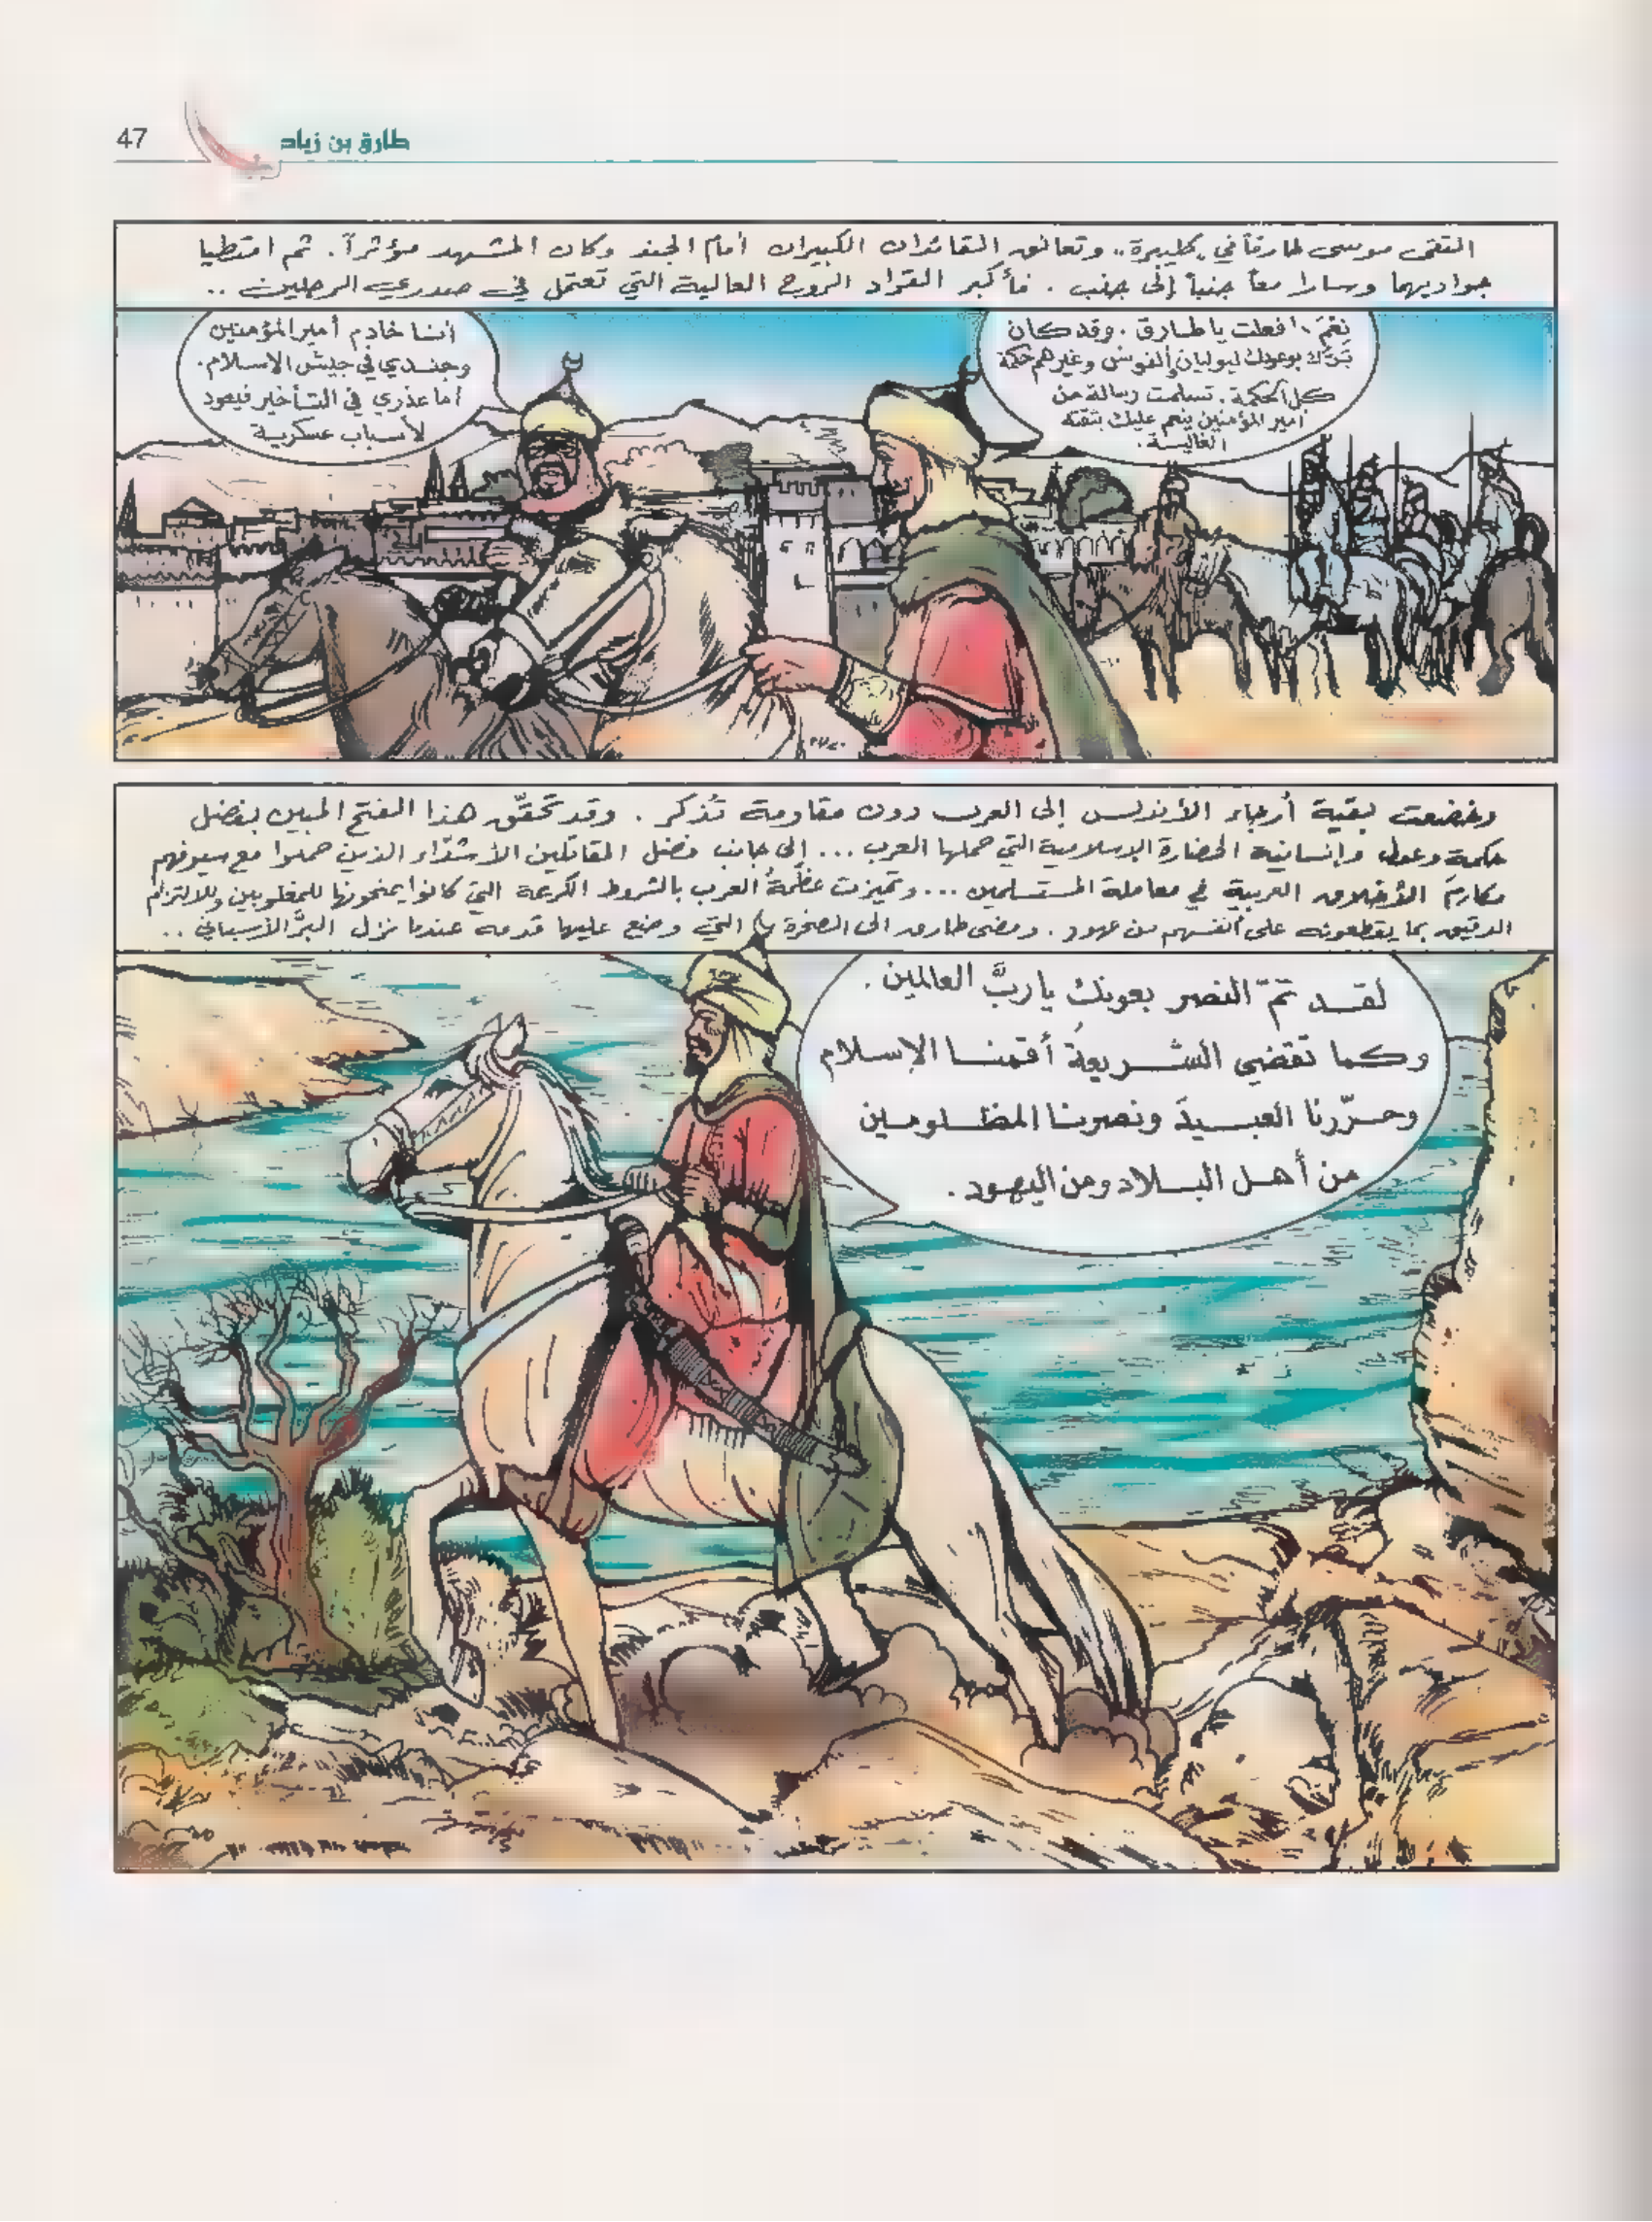 طارق بن زياد
47
التقى موسى طارقاً في طليبرة.. وتعانق القائدان الكبيران أمام الجند وكان المشهد مؤثراً. ثم امتطيا
جواديهما وسارا معاً جنباً إلى جنب. فأكبر القواد الروح العالية التي تعتمل في صدري الرجلين ..
نِعْمَ ما فعلت يا طارق. وقد كان
بَرُّك بوعودك ليوليان وألفونس وغيرهم حكمة
كل الحكمة. تسلمت رسالة من
أمير المؤمنين ينعم عليك بثقته
الغالية.
أنا خادم أمير المؤمنين
وجندي في جيش الاسلام.
أما عذري في التأخير فيعود
لأسباب عسكرية
وخضعت بقية أرجاء الأندلس إلى العرب دون مقاومة تُذكر. وقد تحقّق هذا الفتح المبين بفضل
حكمة وعدل وإنسانية الحضارة الإسلامية التي حملها العرب... إلى جانب فضل المقاتلين الأشدّاء الذين حملوا مع سيوفهم
مكارمَ الأخلاق العربية في معاملة المستسلمين... وتميزت عظمةُ العرب بالشروط الكريمة التي كانوا يمنحونها للمغلوبين وللالتزام
الدقيق بما يقطعونه على أنفسهم من عهود. ومضى طارق الى الصخرة التي وضع عليها قدمه عندما نزل البرَّ الأسباني ..
لقد تمّ النصر بعونك يا ربَّ العالمين.
وكما تقضي الشريعةُ أقمنا الإسلام
وحرّرنا العبيدَ ونصرنا المظلومين
من أهل البلاد ومن اليهود.